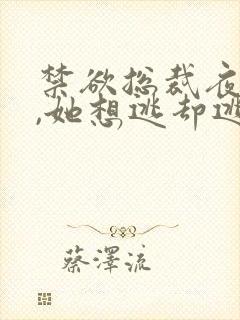 禁欲总裁夜
,她想逃却逃
蔡澤流